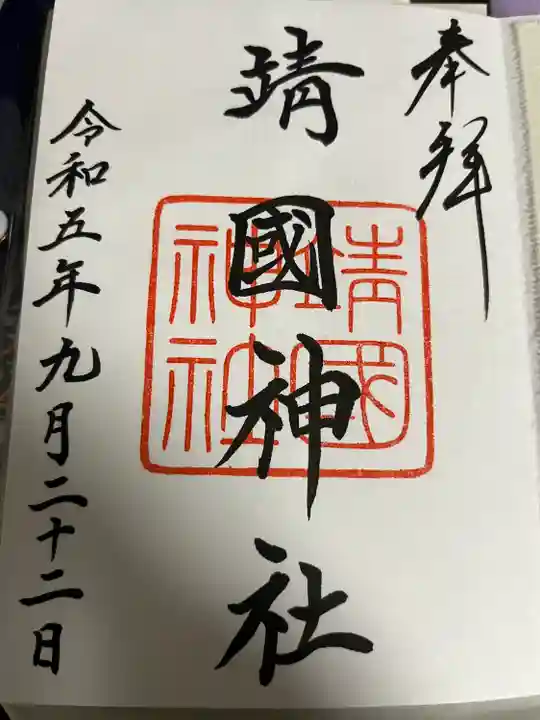 奉拝
靖國神社
靖國
神社
令和五年九月二十二日